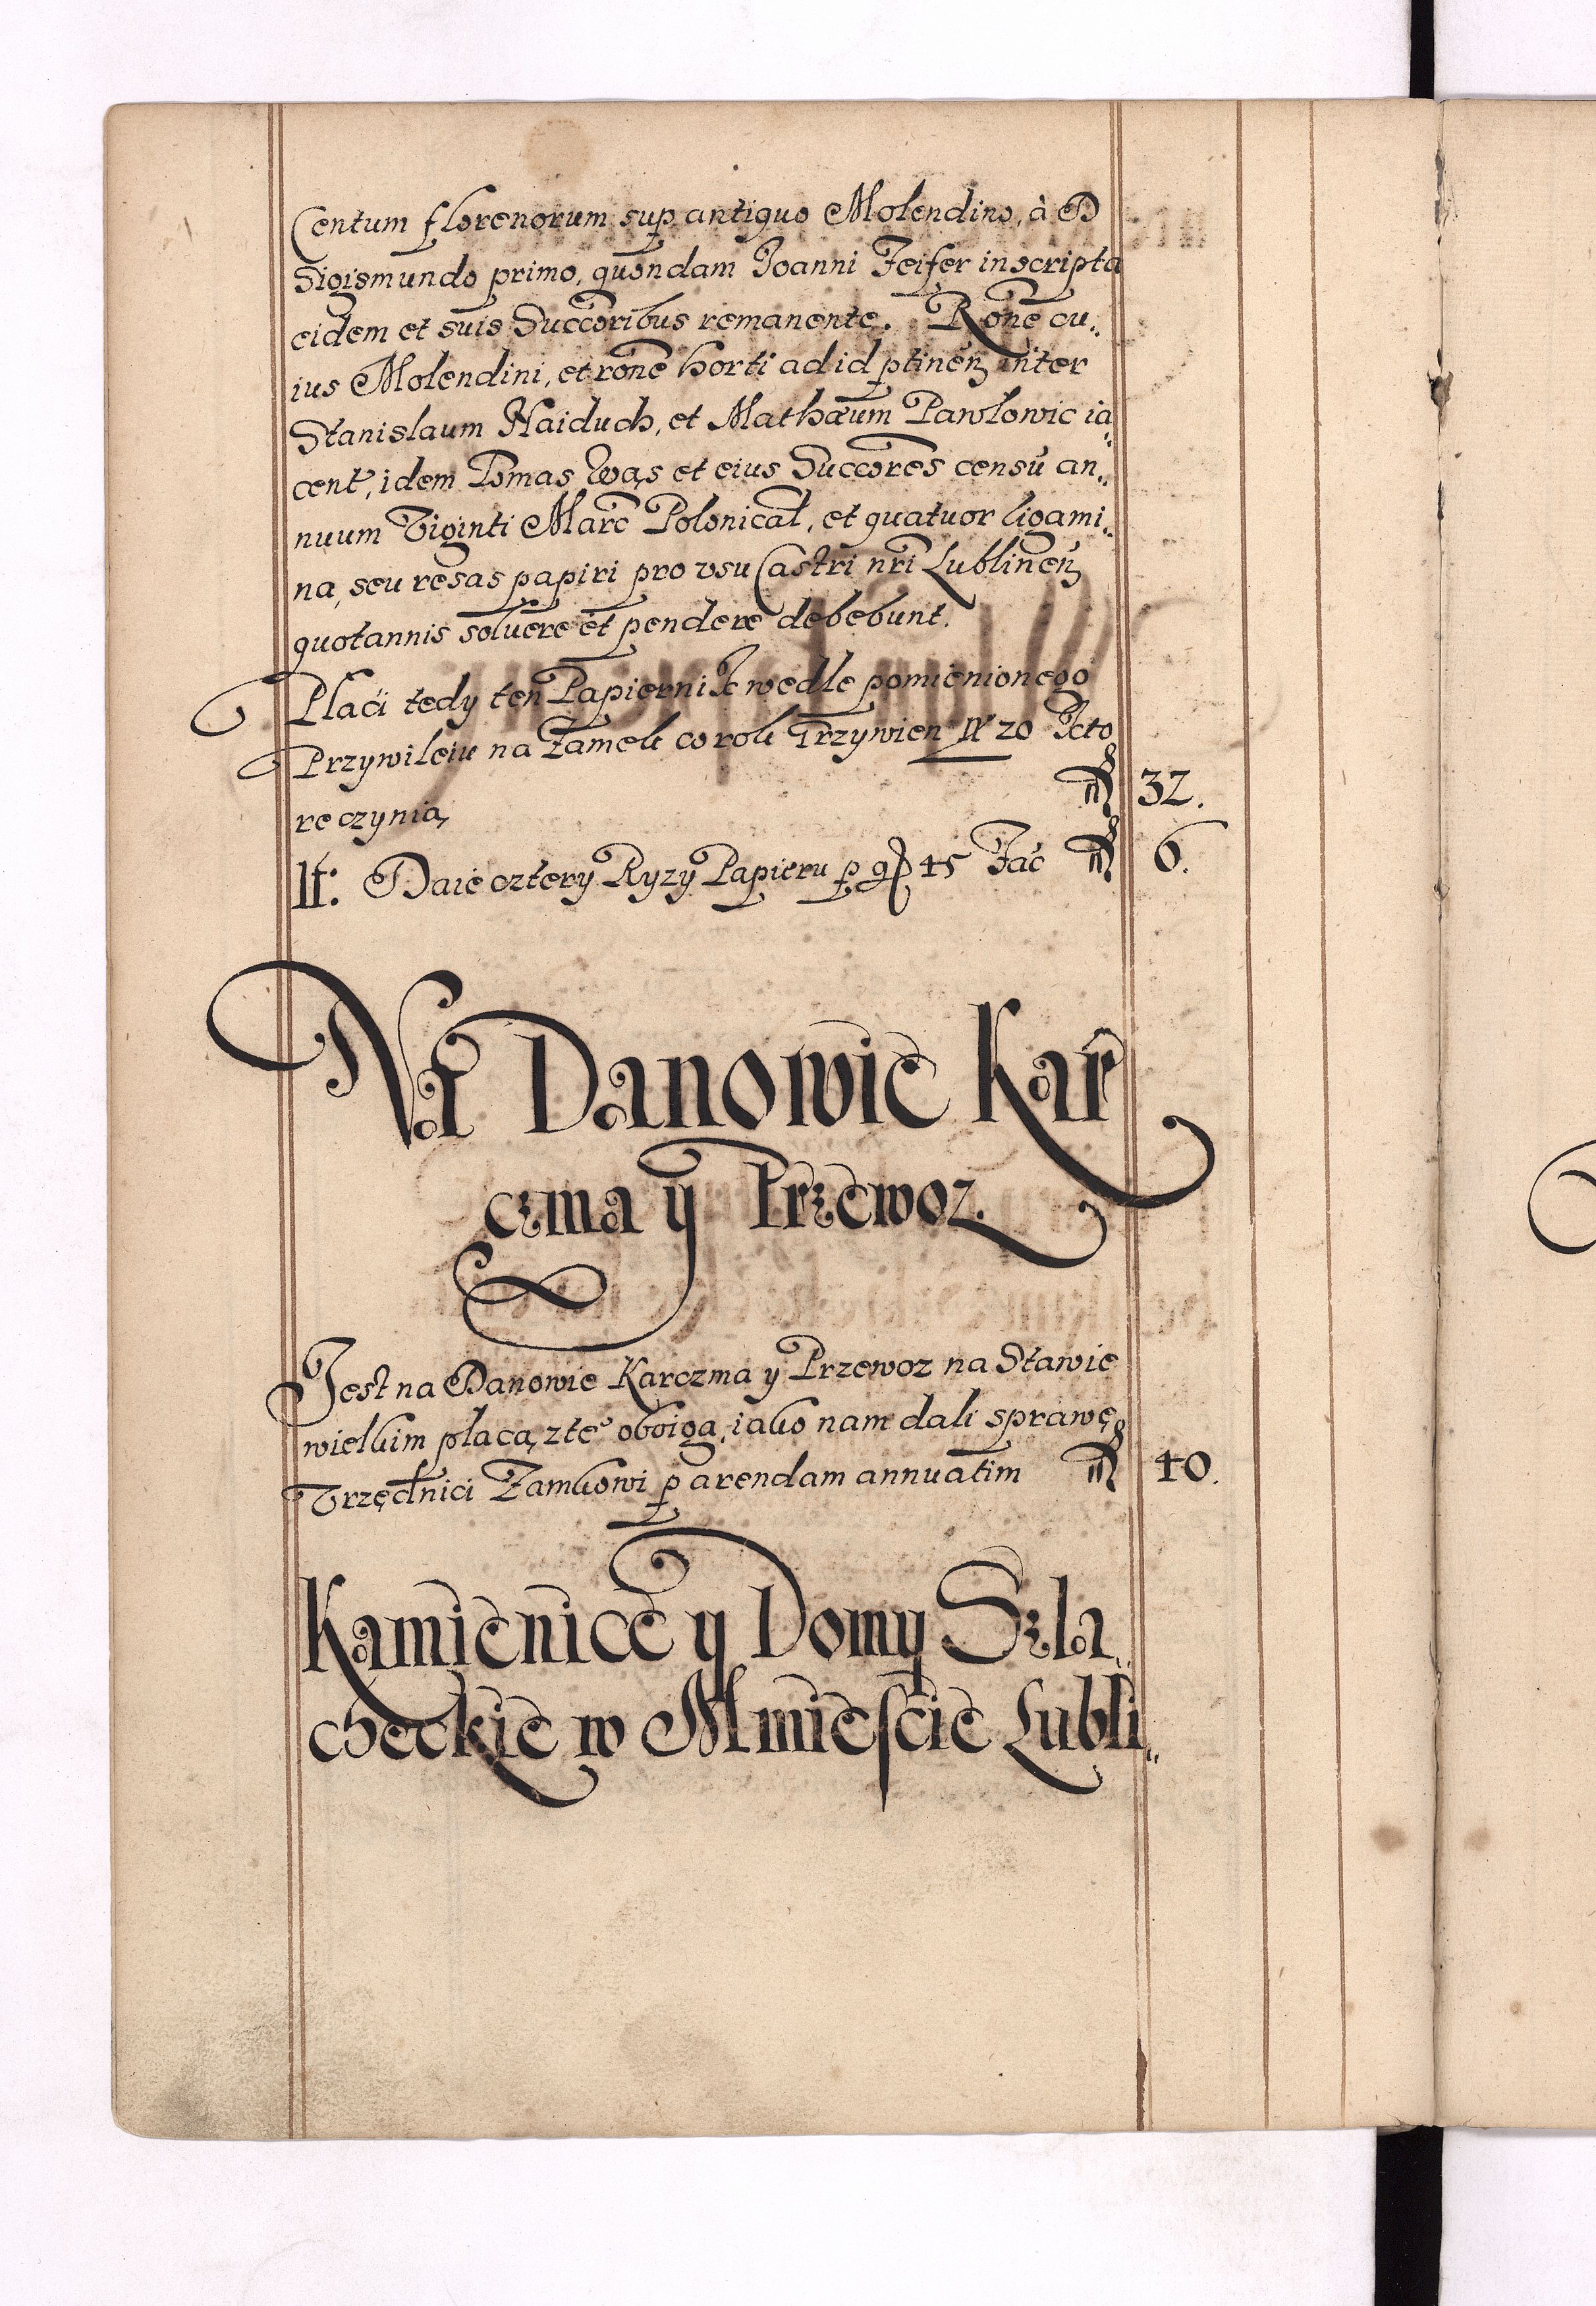 Centum florenorum sup antiquo Molendino, à D
Sigismundo primo, quondam Joanni Feifer inscripta
eidem et suis Succoribus remanente. Rone cu„
ius Molendini, et rone horti ad id ptinen inter
Stanislaum Haiduch, et Mathæum Pawlowic ia„
cent, idem Tomas Wąs et eius Succores censu an„
nuum Viginti Marc Polonical, et quatuor ligami„
na, seu resas papiri pro vsu Castri nri Lublinen
quotannis soluere et pendere debebunt.
Placi tedy ten Papiernik wedle pomienionego
Przywileiu na Zamek co rok Grzywien 20 kto
re czynią 32.
It: Daie cztery Ryzy Papieru p 45 Fac 6.
Na Danowie Kar
czma y Przewoz.
Jest na Danowie Karczma y Przewoz na Stawie
wielkim placą z te° oboiga, iako nam dali sprawę
Vrzędnici Zamkowi p arendam annuatim 40.
Kamienice y Domy Szla„
checkie w Mmieście Lubli„